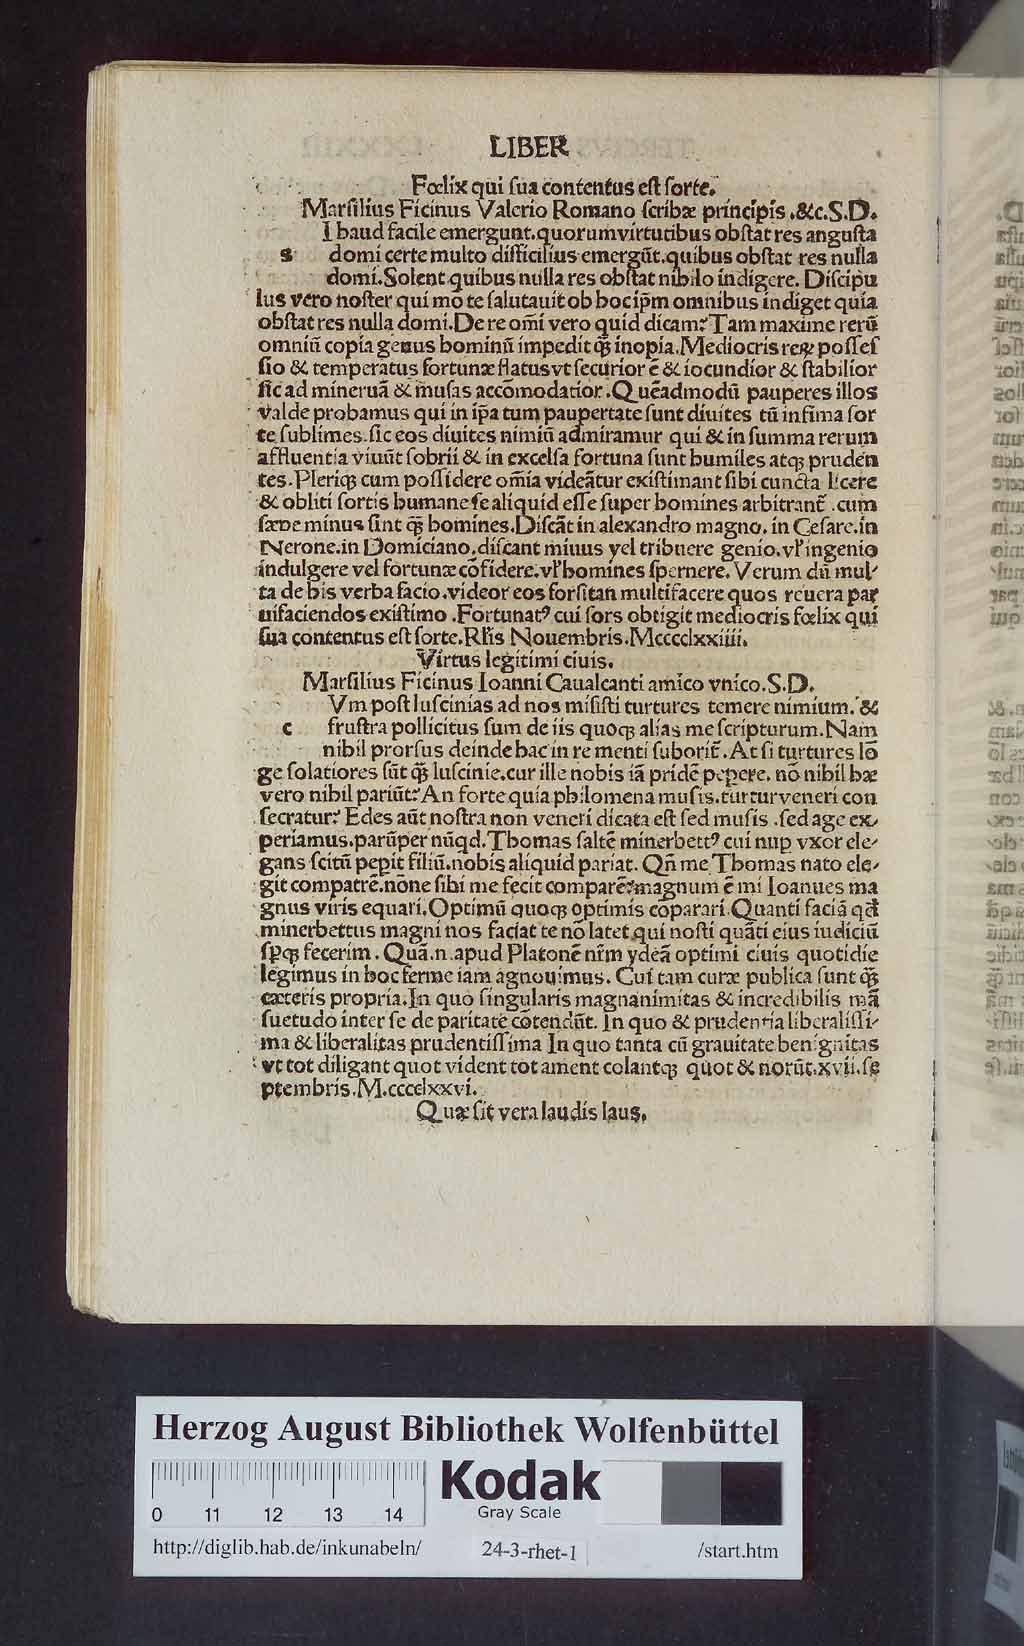 LIBER
Fœlix qui ſua contentus eſt ſorte.
Marſilius Ficinus Valerio Romano ſcribæ principis .&c.S.D.
I haud facile emergunt.quorumvirtutibus obſtat res anguſta
s domi certe multo difficilius emergūt.quibus obſtat res nulla
domi.Solent quibus nulla res obſtat nihilo indigere. Diſcipu
lus vero noſter qui mo te ſalutauit ob hocip̄m omnibus indiget quia
obſtat res nulla domi.De re om̄i vero quid dicam? Tam maxime rerū
omniū copia genus hominū impedit q̄ꝫ inopia.Mediocris reꝝ poſſeſ
ſio & temperatus fortunæ flatus vt ſecurior ē & iocundior & ſtabilior
ſic ad mineruā & muſas accōmodatior .Quēadmodū pauperes illos
valde probamus qui in ip̄a tum paupertate ſunt diuites tū infima ſor
te ſublimes.ſic eos diuites nimiū admiramur qui & in ſumma rerum
affluentia viuūt ſobrii & in excelſa fortuna ſunt humiles atqꝫ pruden
tes.Pleriqꝫ cum poſſidere om̄ia videātur exiſtimant ſibi cuncta licere
& obliti ſortis humane ſe aliquid eſſe ſuper homines arbitrant̄ .cum
ſæpe minus ſint q̄ꝫ homines.Diſcāt in alexandro magno. in Ceſare.in
Nerone.in Domiciano.diſcant minus vel tribuere genio.vꝉ ingenio
indulgere vel fortunæ cōfidere.vꝉ homines ſpernere. Verum dū mul⸗
ta de his verba facio.videor eos forſitan multifacere quos reuera par
uifaciendos exiſtimo .Fortunatꝰ cui ſors obtigit mediocris fœlix qui
ſua contentus eſt ſorte.Kꝉis Nouembris.Mcccclxxiiii.
Virtus legitimi ciuis.
Marſilius Ficinus Ioanni Caualcanti amico vnico.S.D.
Vm poſt luſcinias ad nos miſiſti turtures temere nimium. &
c fruſtra pollicitus ſum de iis quoqꝫ alias me ſcripturum.Nam
nihil prorſus deinde hac in re menti ſuborit̄ .At ſi turtures lō
ge ſolatiores ſūt q̄ꝫ luſcinie.cur ille nobis iā pridē pepere. nō nihil hæ
vero nihil pariūt? An forte quia philomena muſis.turtur veneri con
ſecratur? Edes aūt noſtra non veneri dicata eſt ſed muſis .ſed age ex⸗
periamus.parūper nūqd.Thomas ſaltē minerbettꝰ cui nup vxor ele⸗
gans ſcitū pepit filiū.nobis aliquid pariat. Qn̄ me Thomas nato ele⸗
git compatrē.nōne ſibi me fecit comparē?magnum ē mi Ioannes ma
gnus viris equari.Optimū quoqꝫ optimis cōparari.Quanti faciā qd
minerbettus magni nos faciat te nō latet qui noſti quāti eius iudiciū
ſꝑqꝫ fecerim . Quā.n.apud Platonē nr̄m ydeā optimi ciuis quotidie
legimus in hoc ferme iam agnouimus. Cui tam curæ publica ſunt q̄ꝫ
cæteris propria.In quo ſingularis magnanimitas & incredibilis mā
ſuetudo inter ſe de paritate cōtendūt. In quo & prudentia liberaliſſi⸗
ma & liberalitas prudentiſſima In quo tanta cū grauitate benignitas
vt tot diligant quot vident tot ament colantqꝫ quot & norūt.xvii.ſe
ptembris.M.cccclxxvi.
Quæ ſit vera laudis laus.
Herzog August Bibliothek Wolfenbüttel
0 11 12 13 14
Kodak
Gray Scale
http://diglib.hab.de/inkunabeln/ 24-3-rhet-1 /start.htm